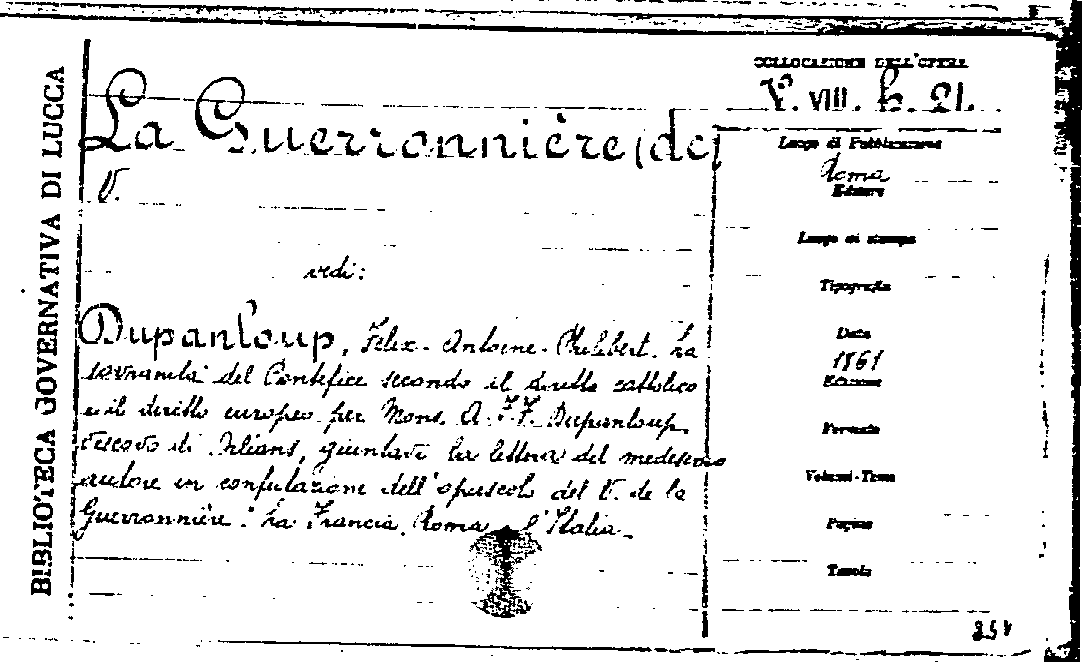 BIBLIOTECA GOVERNATIVA DI LUCCA
La Guerronnière (de)
V.
vedi:
Dupanloup, Felix-Antoine-Philibert. La
sovranità del Pontefice secondo il diritto cattolico
e il diritto europeo per Mons. A. F. F. Dupanloup,
vescovo di Orlians, giuntavi la lettera del medesimo
autore in confutazione dell'opuscolo del V. de la
Guerronnière: La Francia, Roma e l'Italia.
COLLOCAZIONE DELL'OPERA
V. VIII. b. 21.
Luogo di Pubblicazione
Roma
Editore
Luogo di stampa
Tipografia
Data
1861
Edizione
Formato
Volumi-Tomo
Pagine
Tavole